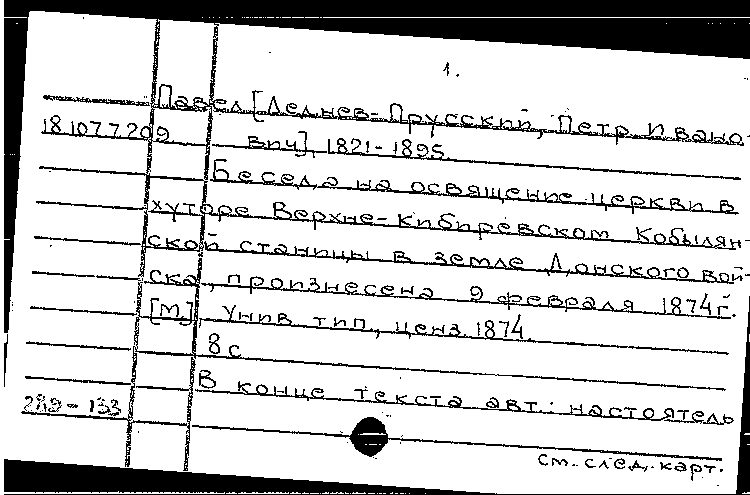 1.
Павел [Леднев-Прусский, Петр Ивано-
18107 7 209 вич], 1821-1895.
Беседа на освящение церкви в
хуторе Верхне-Кибиревском Кобылян-
ской станицы в земле Донского вой-
ска, произнесена 9 февраля 1874г.
[М], Унив тип., ценз. 1874.
8 с
В конце текста авт.: настоятель
289-133
См. след. карт.